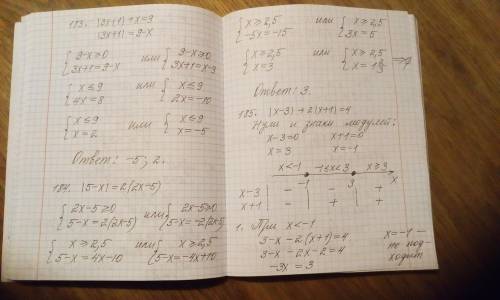 183. |3x+1|+x=9
|3x+1|=9-x
{9-x≥0 или {9-x≥0
{3x+1=9-x {3x+1=x-9
{x≤9 или {x≤9
{4x=8 {2x=-10
{x≤9 или {x≤9
{x=2 {x=-5
Ответ: -5; 2.
184. |5-x|=2(2x-5)
{2x-5≥0 или {2x-5≥0
{5-x=2(2x-5) {5-x=-2(2x-5)
{x≥2,5 или {x≥2,5
{5-x=4x-10 {5-x=-4x+10
{x≥2,5 или {x≥2,5
{-5x=-15 {3x=5
{x≥2,5 или {x≥2,5
{x=3
Ответ: 3.
185. |x-3|+2|x+1|=4
Нули и знаки модулей:
x-3=0 x+1=0
x=3 x=-1
x<-1 -1≤x<3 x≥3
-1 3 x
x-3 | - | - | +
x+1 | - | + | +
1. При x<-1
3-x-2(x+1)=4
3-x-2x-2=4
-3x=3
x=-1 -
не под-
ходит